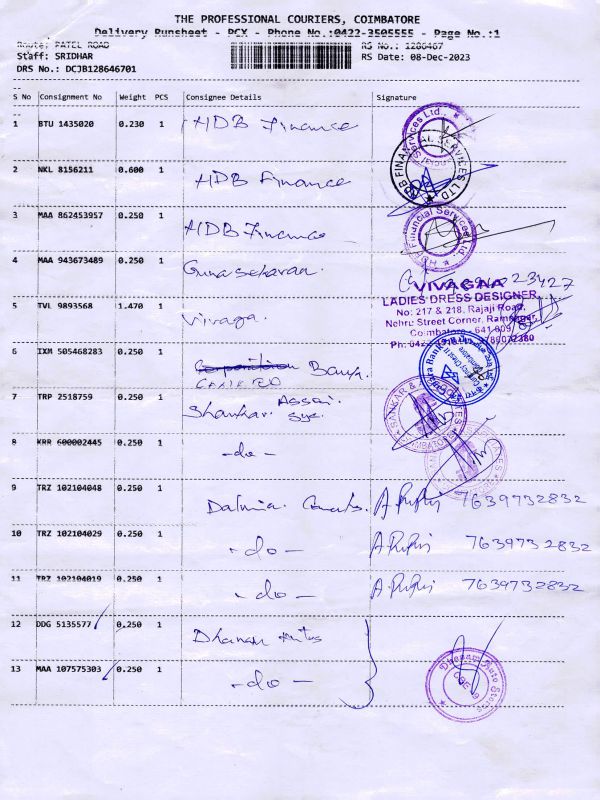 THE PROFESSIONAL COURIERS, COIMBATORE
Delivery Runsheet - PCX - Phone No.:0422-3505555 - Page No.:1
Route: PATEL ROAD RS No.: 1286467
Staff: SRIDHAR RS Date: 08-Dec-2023
DRS No.: DCJB128646701
S No Consignment No Weight PCS Consignee Details Signature
1 BTU 1435020 0.230 1 HDB Finance
2 NKL 8156211 0.600 1 HDB Finance
3 MAA 862453957 0.250 1 HDB Finance
4 MAA 943673489 0.250 1 Gunasekaran.
VIVAGNA
LADIES DRESS DESIGNER
No: 217 & 218, Rajaji Road,
5 TVL 9893568 1.470 1 Vivaga.
Nehru Street Corner, Ramnagar,
Coimbatore - 641 009
6 IXM 505468283 0.250 1 Bank.
7 TRP 2518759 0.250 1 Shankar. Assai.
8 KRR 600002445 0.250 1 -do-
9 TRZ 102104048 0.250 1 Dalmia. 7639732832
10 TRZ 102104029 0.250 1 -do- 7639732832
11 TRZ 102104019 0.250 1 -do- 7639732832
12 DDG 5135577 0.250 1 Dhanam
13 MAA 107575303 0.250 1 -do-
Dhanam Auto Stores